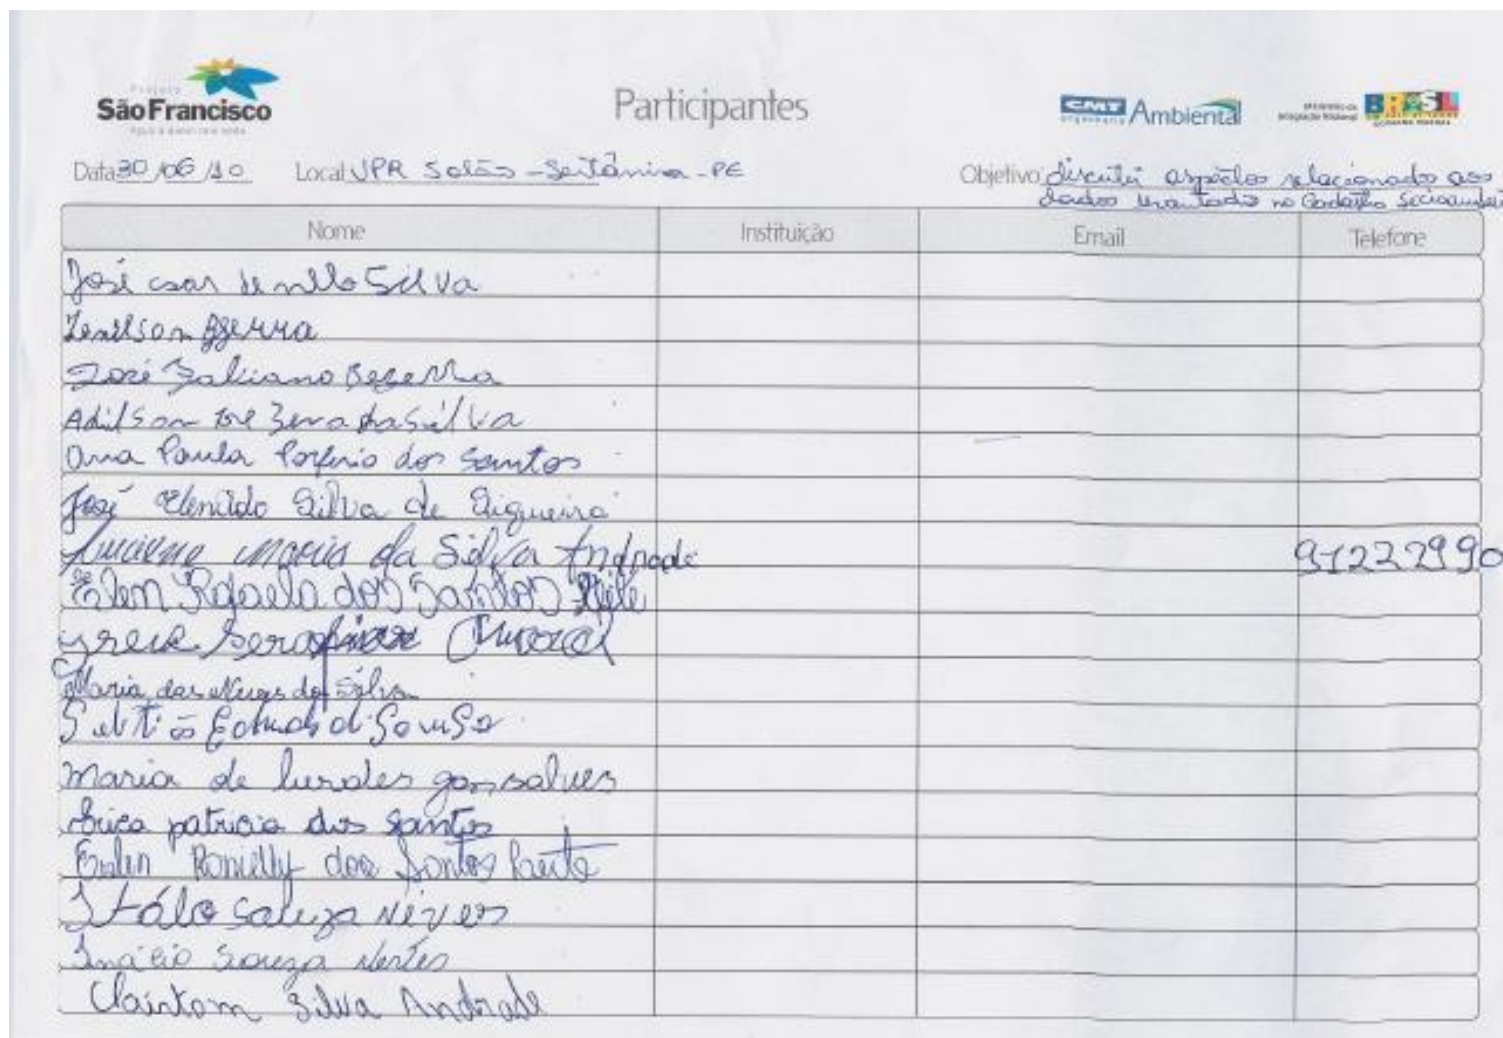 Projeto
São Francisco
Participantes
CMT
engenharia Ambiental
Ministério da
Integração Nacional
BRASIL
GOVERNO FEDERAL
Data 30/06/10 Local VPR Salão - Sertânia - PE
Objetivo discutir aspectos relacionado aos
dados levantados no Cadastro
Nome Instituição Email Telefone
José cesar de mello Silva
Zenilson Bezerra
José Fabiano Bezerra
Adilson Bezerra da Silva
Ana Paula Porfirio dos Santos
José Elenildo Silva de Siqueira
Luciene maria da Silva Andrade 91222990
Elen Rafaela dos Santos
Serafim
Maria das Neves da Silva
Souso
maria de lurdes gonsalves
Erica patricia dos Santos
Ronielly dos Santos
Itálo Souza Neves
Inácio Souza
Clairtom Silva Andrade